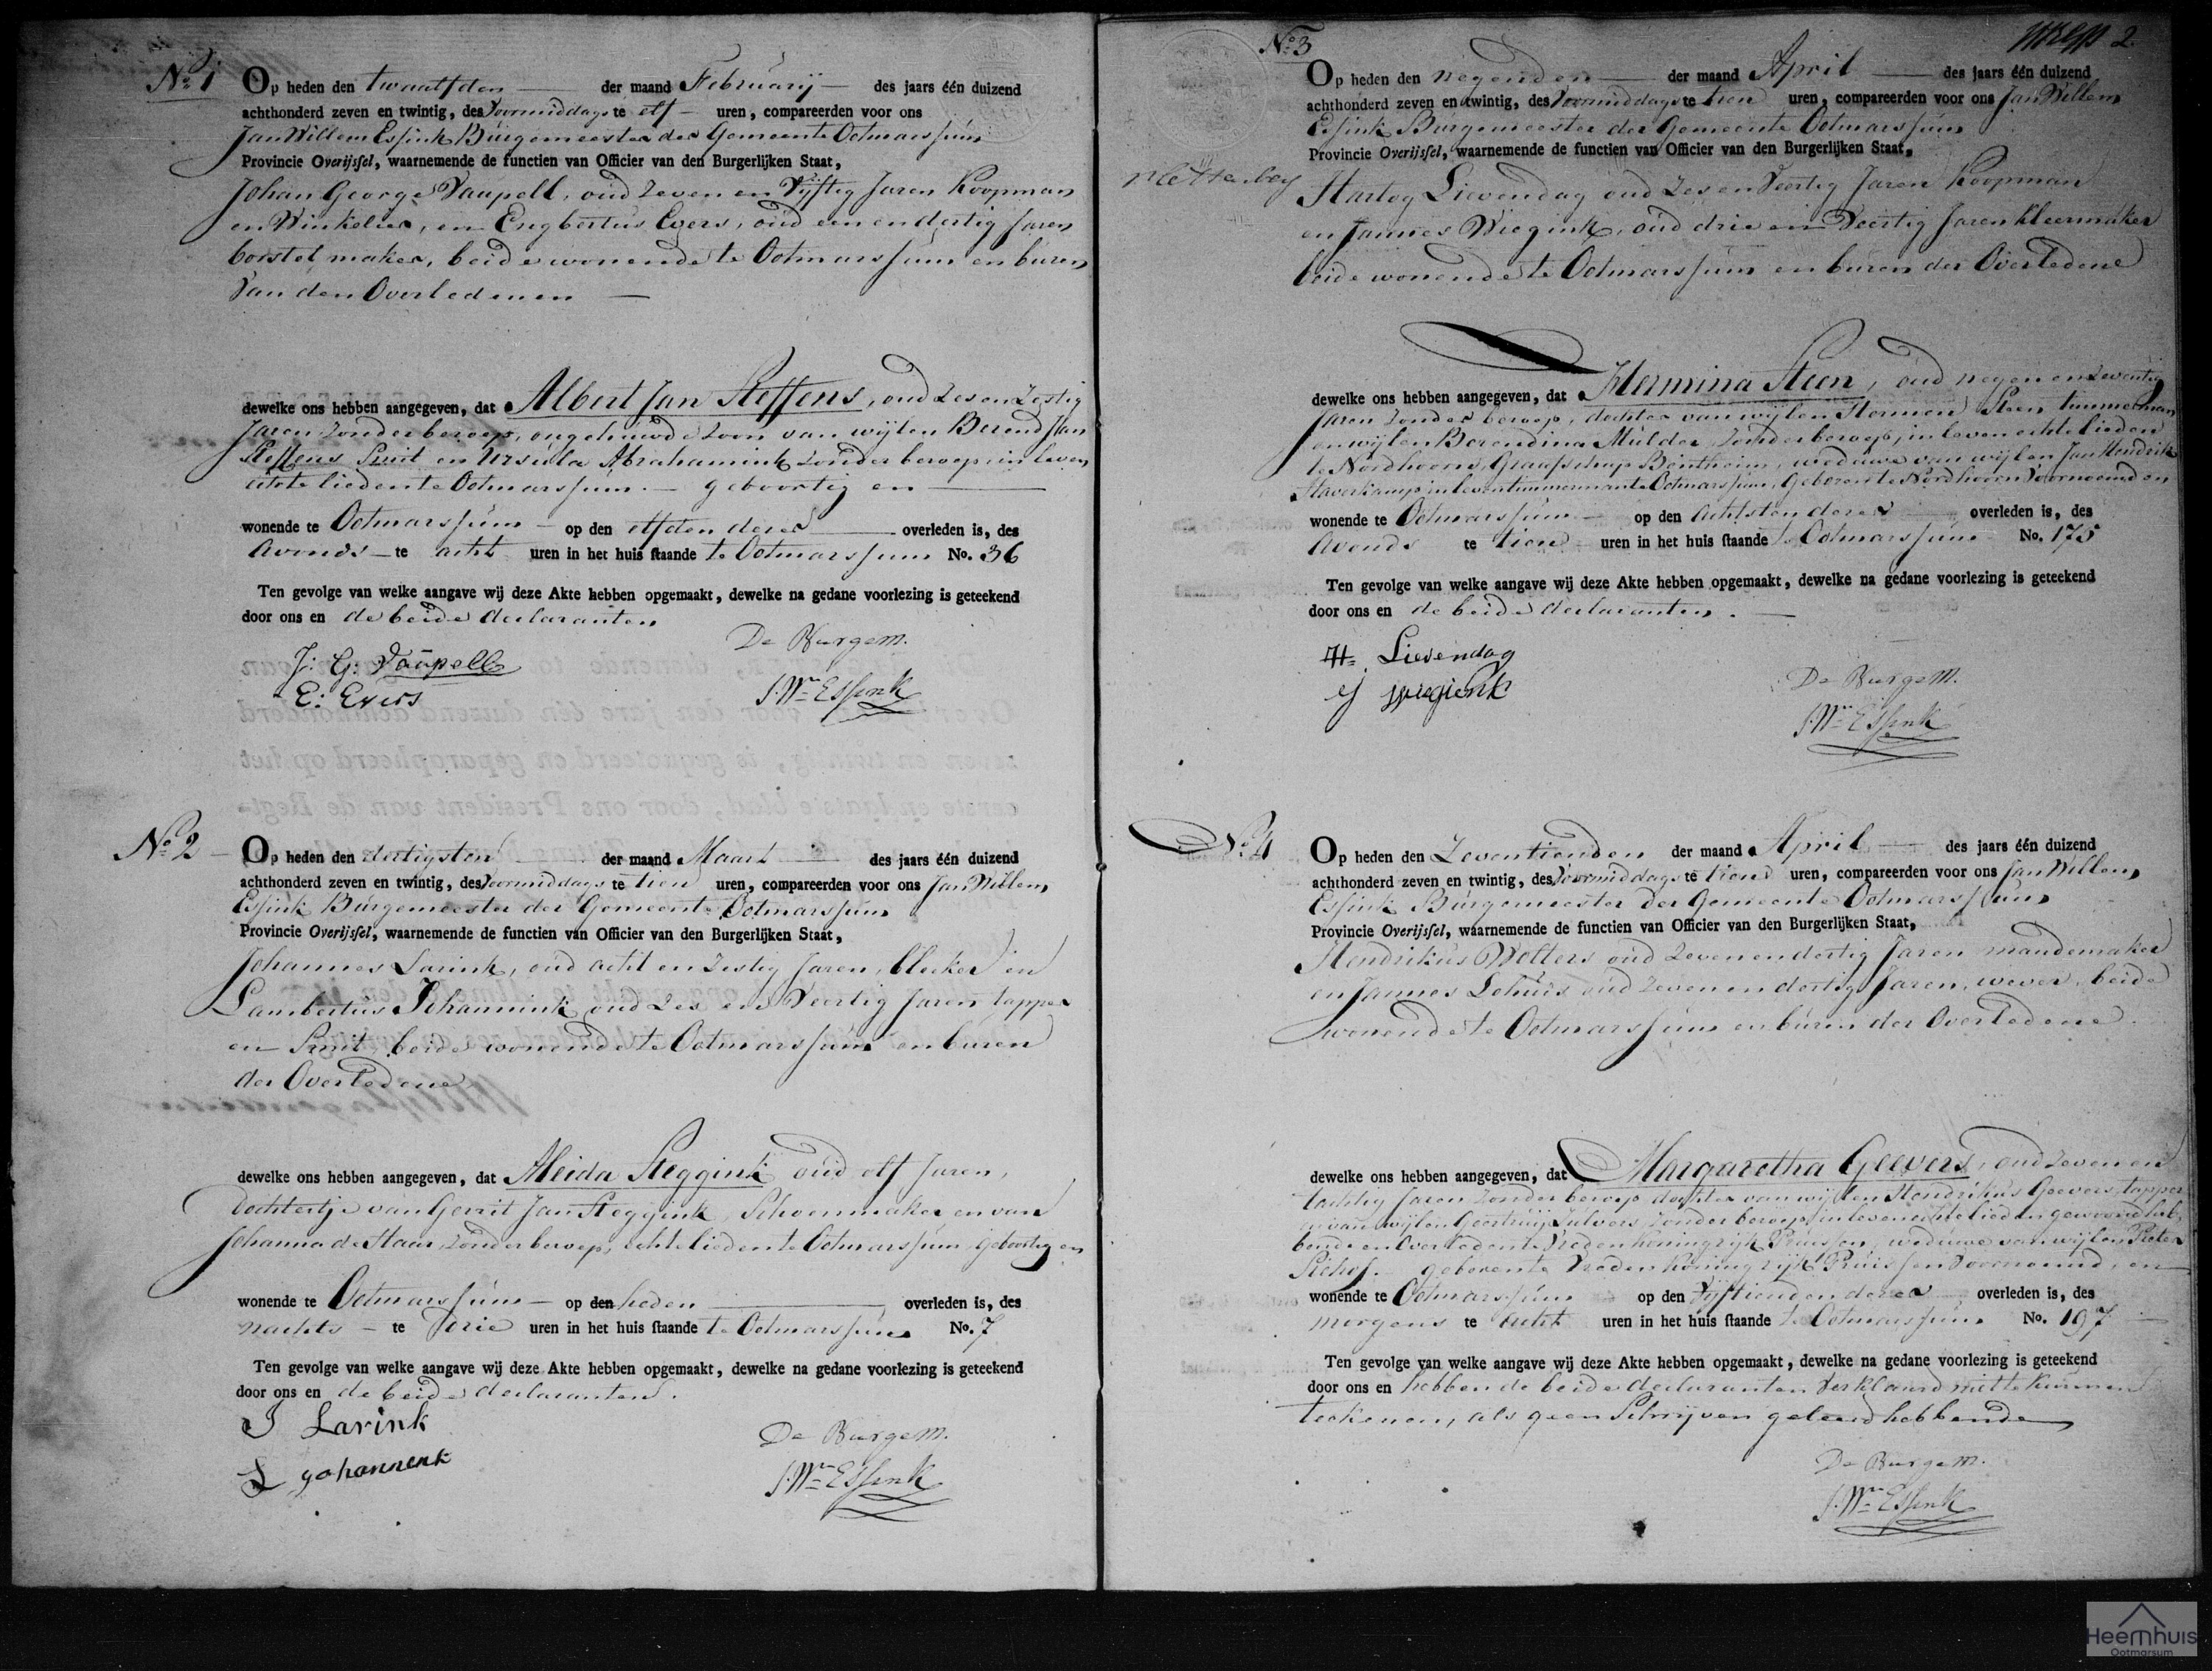 No. 1
Op heden den twaalfden der maand Februarij des jaars één duizend
achthonderd zeven en twintig, des Voormiddags te elf uren, compareerden voor ons
Jan Willem Essink Burgemeester der Gemeente Ootmarssum
Provincie Overijssel, waarnemende de functien van Officier van den Burgerlijken Staat,
Johan George Vaupell, oud Zeven en Vijftig Jaren Koopman
en Winkelier, en Engbertus Evers, oud een en dertig Jaren
borstel maker, beide wonende te Ootmarssum en buren
van den Overledenen
dewelke ons hebben aangegeven, dat Albert Jan Steffens, oud Zes en Zestig
Jaren Zonder beroep, ongehuwde Zoon van wijlen Berend Jan
Steffens Smit en Ursula Abrahamink Zonder beroep, in leven
echte lieden te Ootmarssum. geboortig en
wonende te Ootmarssum op den elfden dezer overleden is, des
Avonds te acht uren in het huis staande te Ootmarssum No. 36
Ten gevolge van welke aangave wij deze Akte hebben opgemaakt, dewelke na gedane voorlezing is geteekend
door ons en de beide declaranten
De Burgem.
J: G: Vaupell
E: Evers
J. Wm Essink
No. 2
Op heden den dertigsten der maand Maart des jaars één duizend
achthonderd zeven en twintig, des Voormiddags te tien uren, compareerden voor ons Jan Willem
Essink Burgemeester der Gemeente Ootmarssum
Provincie Overijssel, waarnemende de functien van Officier van den Burgerlijken Staat,
Johannes Larink, oud acht en Zestig Jaren, bleeker en
Lambertus Johannink oud Zes en Veertig Jaren tapper
en Smit beide wonende te Ootmarssum en buren
der Overledene
dewelke ons hebben aangegeven, dat Aleida Steggink oud elf Jaren,
dochtertje van Gerrit Jan Steggink, Schoenmaker en van
Johanna de Haar, Zonder beroep, echte lieden te Ootmarssum, geboortig en
wonende te Ootmarssum op den heden overleden is, des
nachts te drie uren in het huis staande te Ootmarssum No. 7
Ten gevolge van welke aangave wij deze Akte hebben opgemaakt, dewelke na gedane voorlezing is geteekend
door ons en de beide declaranten.
J Larink
De Burgem.
L Johannenk
J. Wm Essink
2
No. 3
Op heden den negenden der maand April des jaars één duizend
achthonderd zeven en twintig, des Voormiddags te tien uren, compareerden voor ons Jan Willem
Essink Burgemeester der Gemeente Ootmarssum
Provincie Overijssel, waarnemende de functien van Officier van den Burgerlijken Staat,
Hartog Lievendag oud Zes en Veertig Jaren Koopman
en Jannes Wiegink, oud drie en Veertig Jaren kleermaker
beide wonende te Ootmarssum en buren der Overledene
dewelke ons hebben aangegeven, dat Hermina Steen, oud negen en Zeventig
Jaren Zonder beroep, dochter van wijlen Hermen Steen timmerman
en wijlen Berendina Mulder Zonder beroep, in leven echte lieden
te Nordhoorn, Graafschap Bentheim, weduwe van wijlen Jan Hendrik
Staverkamp in leven timmerman te Ootmarssum, Geboren te Nordhoorn Voornoemd en
wonende te Ootmarssum op den achtsten dezer overleden is, des
Avonds te tien uren in het huis staande te Ootmarssum No. 175
Ten gevolge van welke aangave wij deze Akte hebben opgemaakt, dewelke na gedane voorlezing is geteekend
door ons en de beide declaranten.
H= Lievendag
De Burgem.
J. Wm Essink
No. 4
Op heden den Zeventienden der maand April des jaars één duizend
achthonderd zeven en twintig, des Voormiddags te tien uren, compareerden voor ons Jan Willem
Essink Burgemeester der Gemeente Ootmarssum
Provincie Overijssel, waarnemende de functien van Officier van den Burgerlijken Staat,
Hendrikus Wolters oud Zeven en dertig Jaren mandemaker
en Jannes Lohuis oud Zeven en dertig Jaren, wever, beide
wonende te Ootmarssum en buren der Overledene.
dewelke ons hebben aangegeven, dat Margaretha Geevers, oud Zeven en
tachtig Jaren Zonder beroep dochter van wijlen Hendrikus Geevers, tapper
en van wijlen Geertruij Zonder beroep, in leven echte lieden gewoond heb-
bende en Overleden te Vreden Koningrijk Pruissen, weduwe van wijlen Pieter
geboren te Vreden Koningrijk Pruissen Voornoemd, en
wonende te Ootmarssum op den Vijftienden dezer overleden is, des
morgens te acht uren in het huis staande te Ootmarssum No. 197
Ten gevolge van welke aangave wij deze Akte hebben opgemaakt, dewelke na gedane voorlezing is geteekend
door ons en hebben de beide declaranten Verklaard niet te kunnen
teekenen, als geen Schrijven geleerd hebbende
De Burgem.
J. Wm Essink
Heemhuis
Ootmarsum